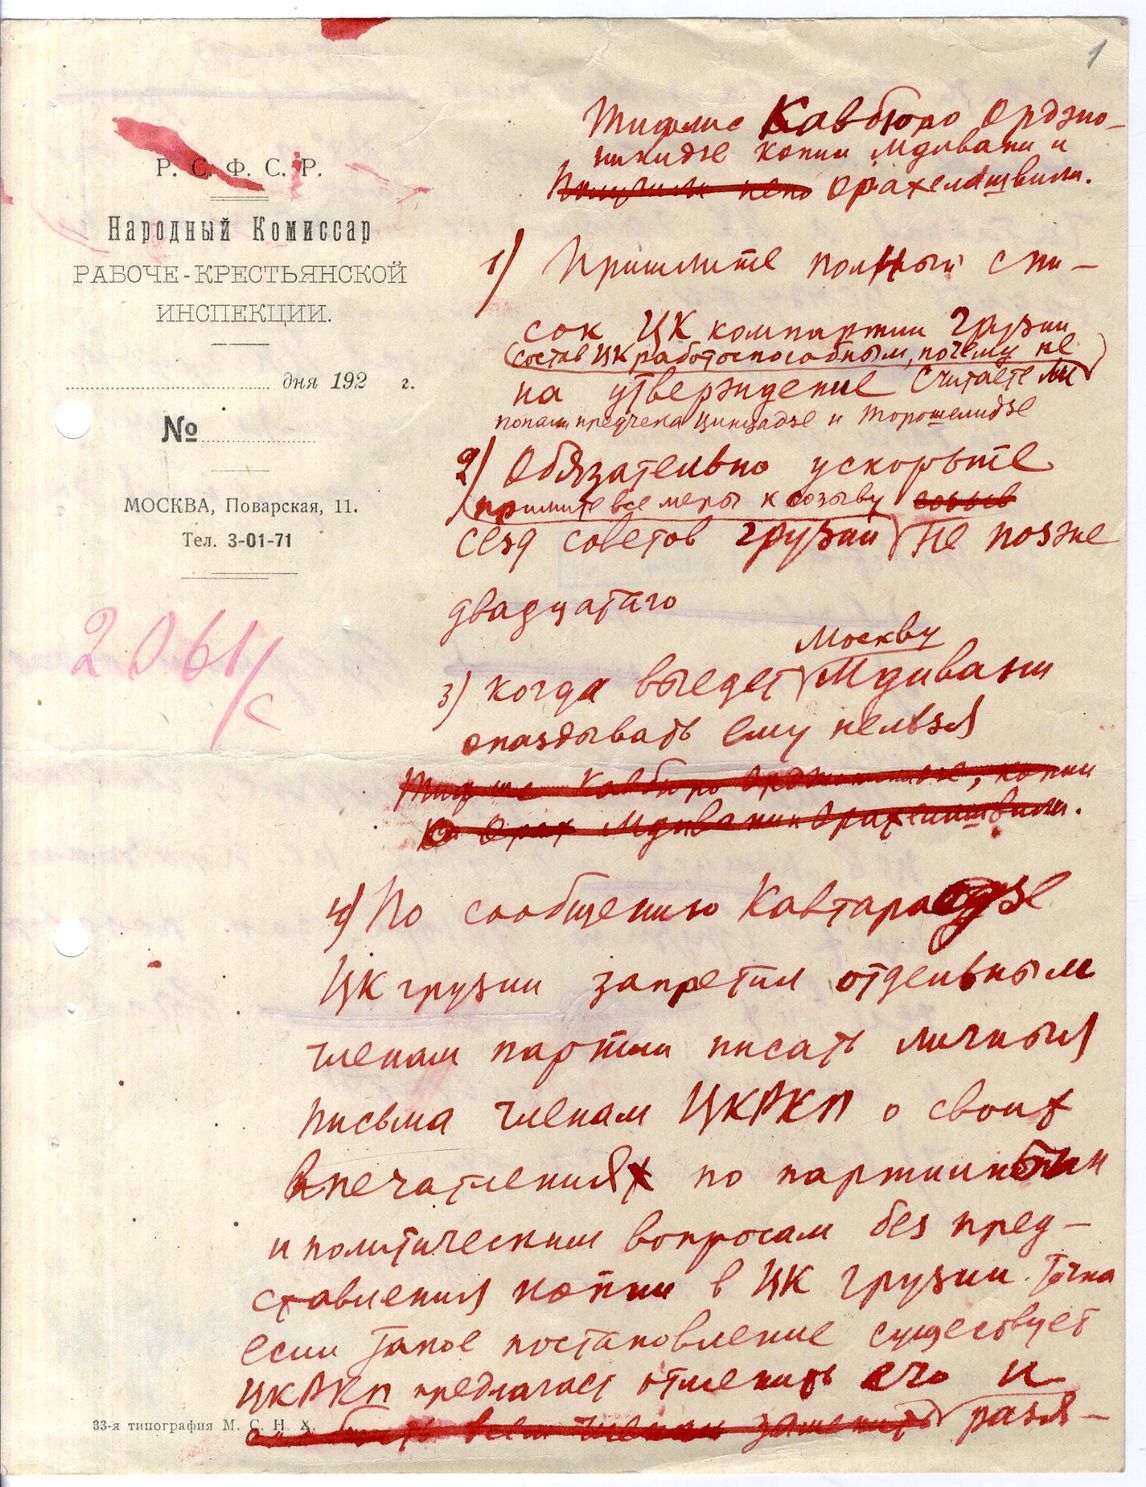 1
Р. С. Ф. С. Р.
Народный Комиссар
РАБОЧЕ-КРЕСТЬЯНСКОЙ
ИНСПЕКЦИИ.
дня 192 г.
№
МОСКВА, Поварская, 11.
Тел. 3-01-71
2061/с
Тифлис Кавбюро Орджо-
никидзе копии Мдивани и
Получили Орахелашвили.
1) Пришлите полный спи-
сок ЦК компартии Грузии
(состав ЦК работоспособным, почему не
на утверждение Считаете ли
попали предчека Цинцадзе и Торошелидзе
2) Обязательно ускорьте
примите все меры к созыву созыв
сезд советов Грузии не позже
двадцатаго
Москву
3) Когда выедет Мдивани
опаздывать ему нельзя
Тифлис Кавбюро Орджоникидзе, копии
Орах Мдивани и Орахелашвили.
4) По сообщению Кавтарадзе
ЦК грузии запретил отдельным
членам партии писать личныя
письма членам ЦКРКП о своих
впечатлениях по партийным
и политическим вопросам без пред-
ставления копии в ЦК Грузии. Точка
если такое постановление существует
ЦКРКП предлагает отменить его и
всем членам разя-
33-я типография М. С. Н. Х.